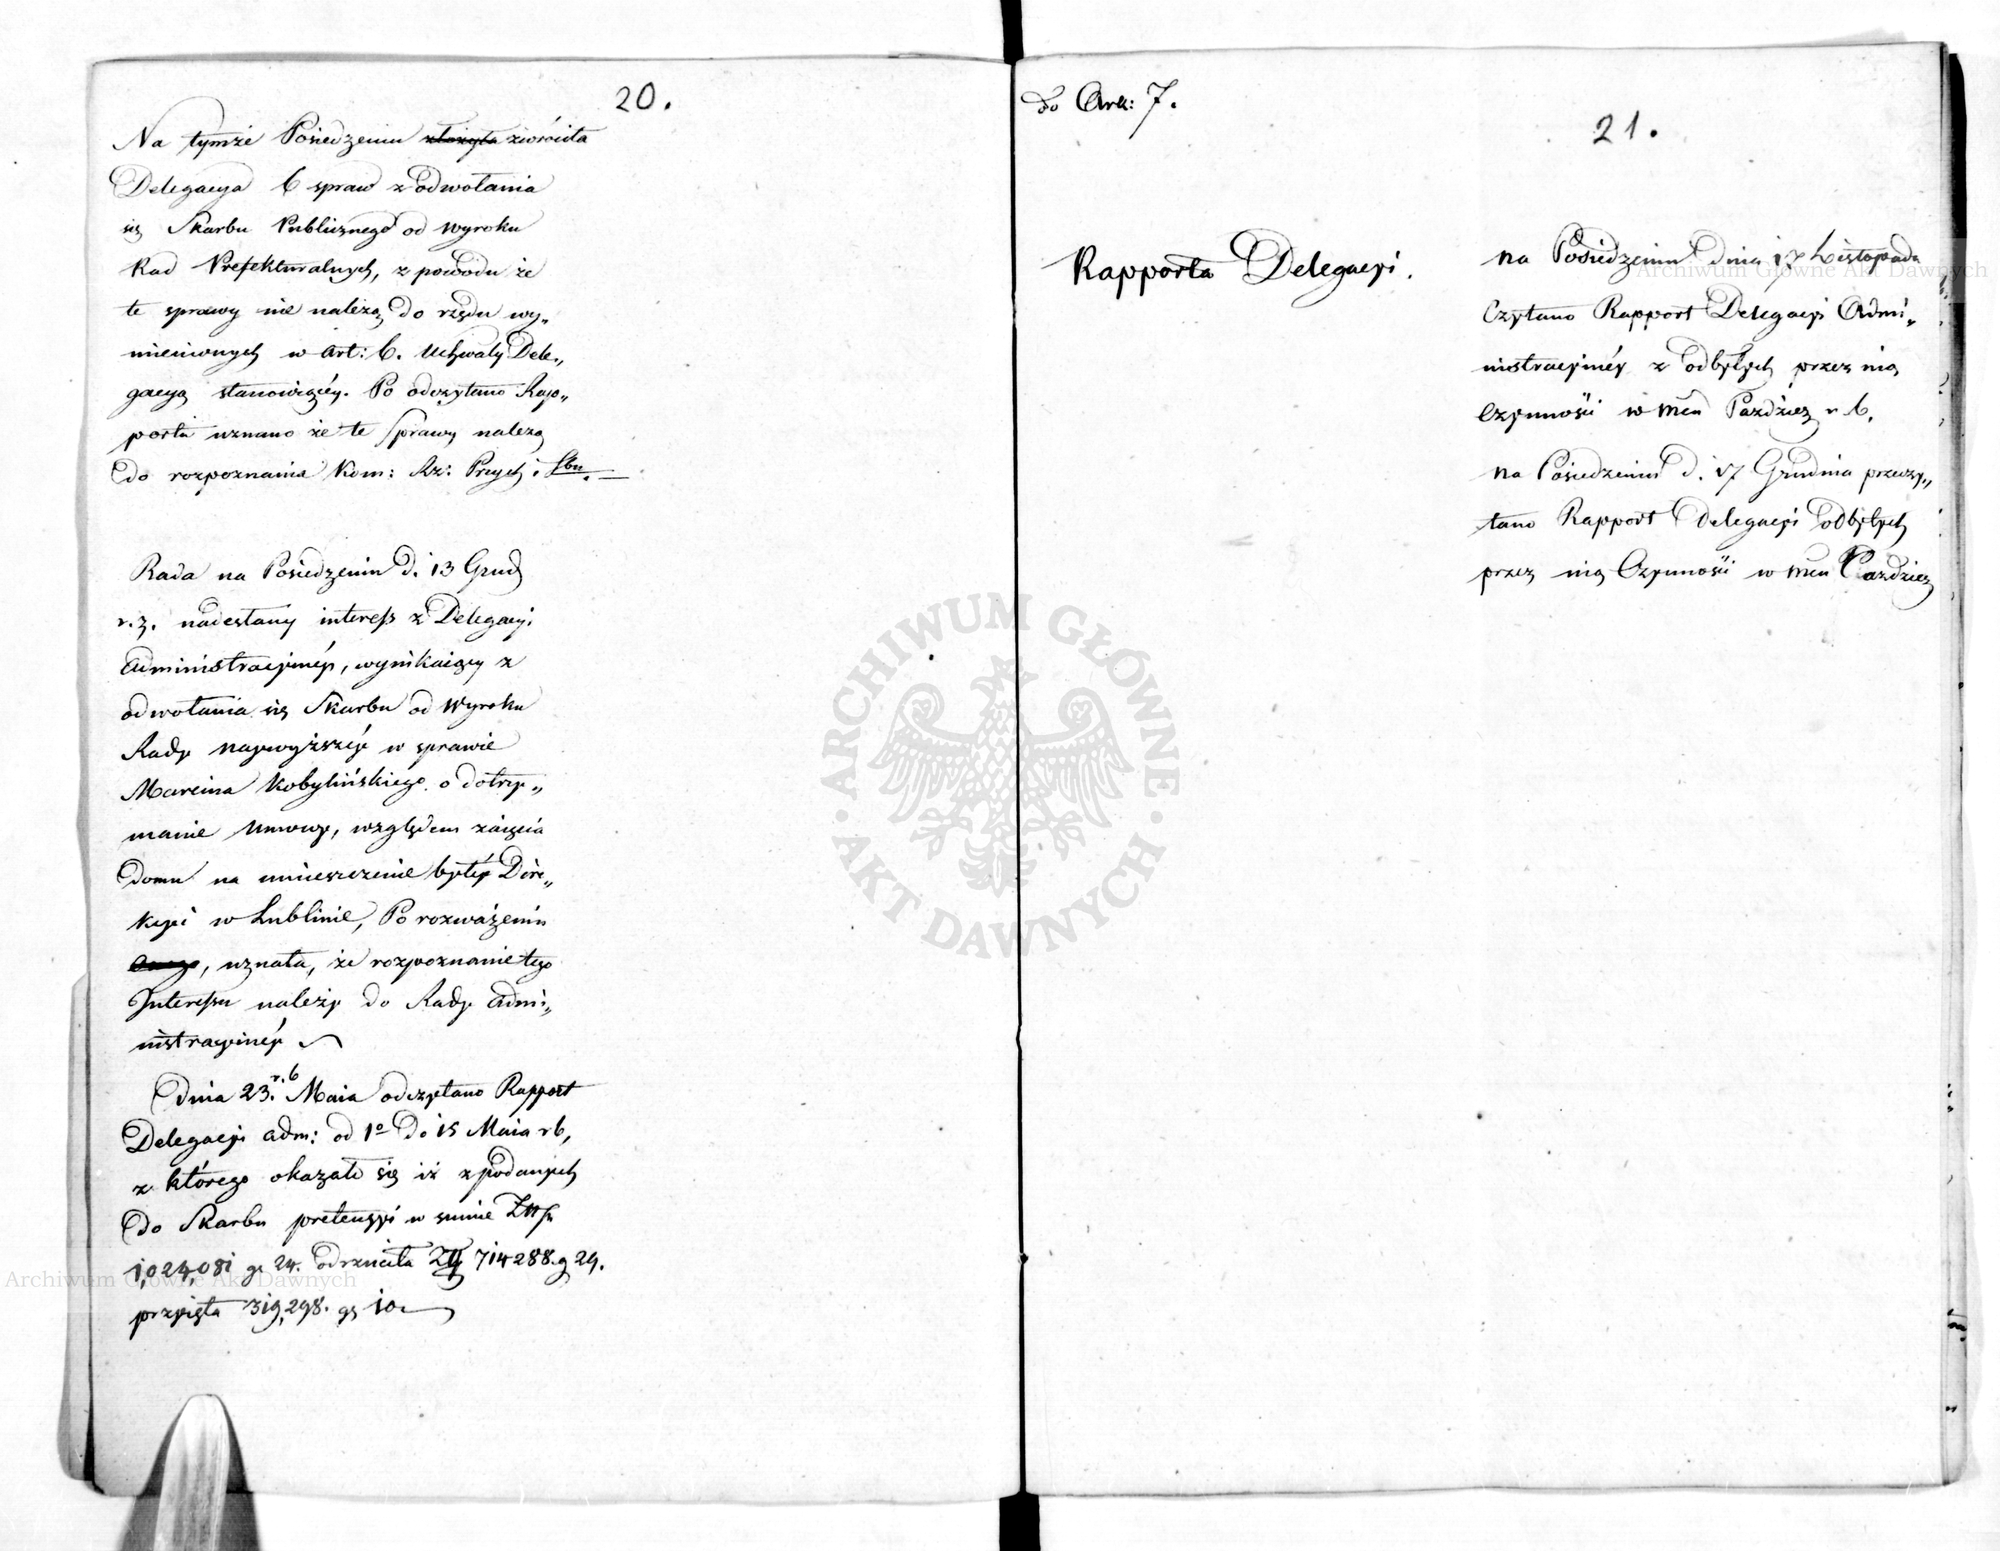 20.
Na tymże Posiedzeniu złożyła zwróciła
Delegacya 6 spraw z odwołania
się Skarbu Publicznego od wyroku
Rad Prefekturalnych, z powodu że
te sprawy nie należą do rzędu wy„
mienionych w art: 6. Uchwały Dele„
gacyą stanowiącéy. Po odczytano Rap„
portu uznano że te Sprawy należą
do rozpoznania Kom: Rz: Przych: i Sbu.
Rada na Posiedzeniu d. 13 Grud
r. z. nadesłany interess z Delegacyi
administracyinéy, wynikaiący z
odwołania się Skarbu od Wyroku
Rady naywyższéy w sprawie
Marcina Kobylińskiego o dotrzy„
manie Umowy, względem zaięcia
domu na umieszczenie byłéy Dire„
kcyi w Lublinie, Po rozważeniu
onego, uznała, że rozpoznanie tego
Interessu należy do Rady admi„
nistracyinéy
Dnia 23. r. b Maia odczytano Rapport
Delegacyi adm: od 1o do 15 Maia rb,
z którego okazało się iż z podanych
do Skarbu pretensyi w sumie Złłp
1,024,081 gr 24. odrzuciła Zł 714288. g 24.
przyięła 319,298. gr 10
do Ark: 7.
21.
Rapporta Delegacyi.
na Posiedzeniu dnia 17 Listopada
Czytano Rapport Delegacyi Admi„
nistracyinéy z odbytych przez nią
czynności w mcu Paździer r b.
na Posiedzeniu d. 17 Grudnia przeczy„
tano Rapport Delegacyi odbytych
przez nią Czynności w mcu Paździer
ARCHIWUM GŁÓWNE AKT DAWNYCH
Archiwum Główne Akt Dawnych
Archiwum Główne Akt Dawnych